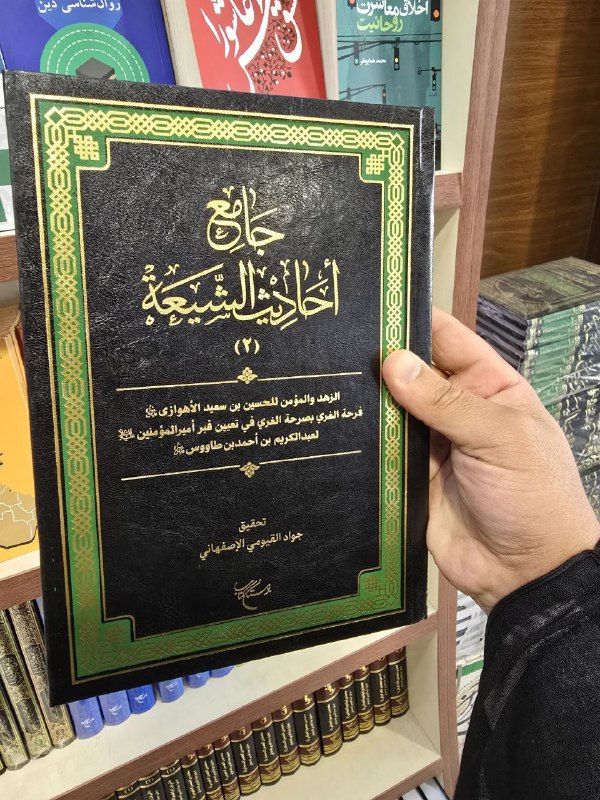 روان‌شناسی دین
اخلاق معاشرت
روحانیت
محمد همایونفر
جامع
أحاديث الشّيعة
(٢)
الزهد والمؤمن للحسين بن سعيد الأهوازی
فرحة الغري بصرحة الغري في تعيين قبر أميرالمؤمنين
لعبدالكريم بن أحمدبن طاووس
تحقيق
جواد القيومي الإصفهاني
بوستان کتاب